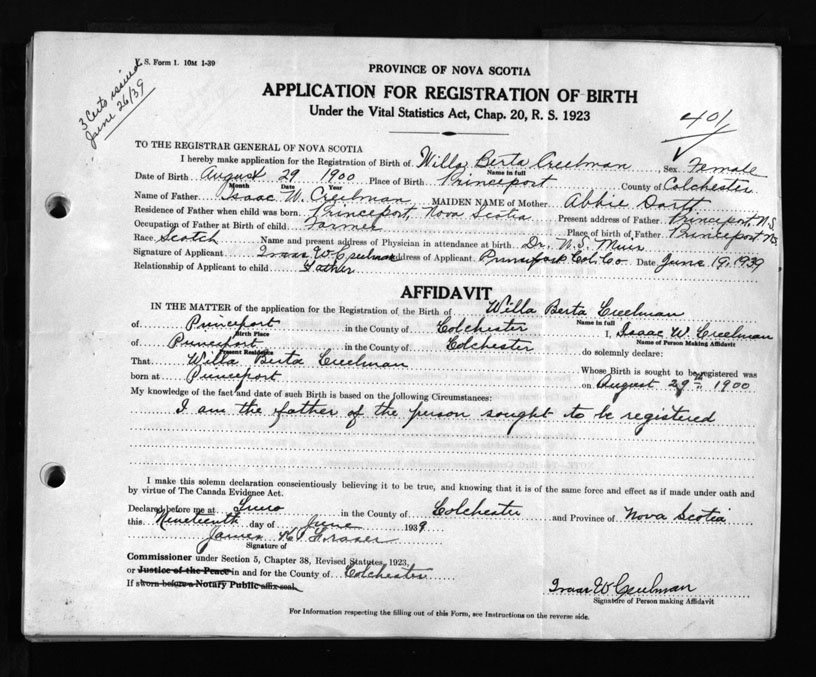 V. S. Form 1. 10M 1-39
3 Certs issued
June 26/39
PROVINCE OF NOVA SCOTIA
APPLICATION FOR REGISTRATION OF BIRTH
Under the Vital Statistics Act, Chap. 20, R. S. 1923
401
TO THE REGISTRAR GENERAL OF NOVA SCOTIA
I hereby make application for the Registration of Birth of Willa Berta Creelman, Sex Female
Name in full
Date of Birth August 29 1900 Place of Birth Princeport County of Colchester
Month Date Year
Name of Father Isaac W. Creelman MAIDEN NAME of Mother Abbie Dartt
Residence of Father when child was born Princeport, Nova Scotia Present address of Father Princeport, N.S.
Occupation of Father at Birth of child Farmer Place of birth of Father Princeport N.S.
Race Scotch Name and present address of Physician in attendance at birth Dr. W. S. Muir
Signature of Applicant Isaac W Creelman address of Applicant Princeport Col. Co. Date June 19, 1939
Relationship of Applicant to child Father
AFFIDAVIT
IN THE MATTER of the application for Registration of the Birth of Willa Berta Creelman
Name in full
of Princeport in the County of Colchester I, Isaac W. Creelman
Birth Place Name of Person Making Affidavit
of Princeport in the County of Colchester do solemnly declare:
Present Residence
That Willa Berta Creelman Whose Birth is sought to be registered was
born at Princeport on August 29th 1900
My knowledge of the fact and date of such Birth is based on the following Circumstances:
I am the father of the person sought to be registered
I make this solemn declaration conscientiously believing it to be true, and knowing that it is of the same force and effect as if made under oath and
by virtue of The Canada Evidence Act.
Declared before me at Truro in the County of Colchester and Province of Nova Scotia
this Nineteenth day of June 1939
James H. Fraser
Signature of
Commissioner under Section 5, Chapter 38, Revised Statutes, 1923,
or Justice of the Peace in and for the County of Colchester
If sworn before a Notary Public affix seal.
Isaac W Creelman
Signature of Person making Affidavit
For Information respecting the filling out of this Form, see Instructions on the reverse side.